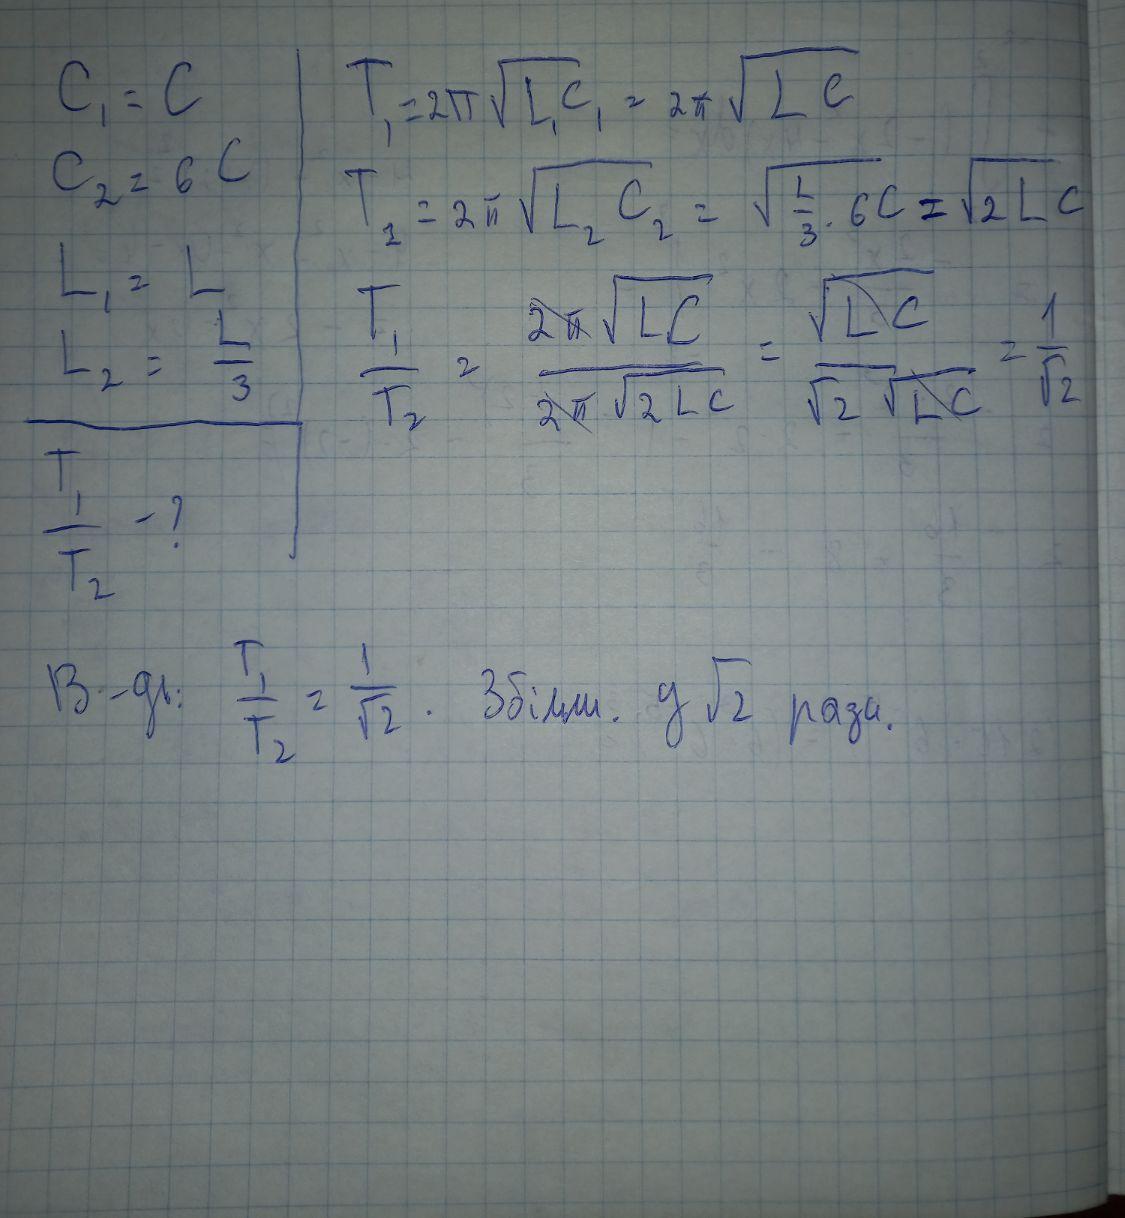 C₁ = C
C₂ = 6 C
L₁ = L
L₂ = L/3
T₁/T₂ - ?
T₁ = 2π√(L₁C₁) = 2π√(LC)
T₂ = 2π√(L₂C₂) = √(L/3 · 6C) = √(2LC)
T₁/T₂ = 2π√(LC)/2π√(2LC) = √(LC)/√2√(LC) = 1/√2
В-дь: T₁/T₂ = 1/√2. Збільш. у √2 рази.